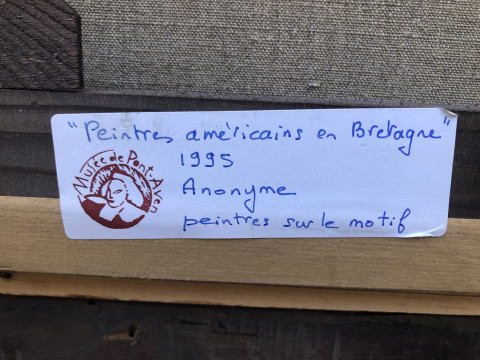 "Peintres américains en Bretagne"
1995
Musée de Pont-Aven
Anonyme
peintres sur le motif